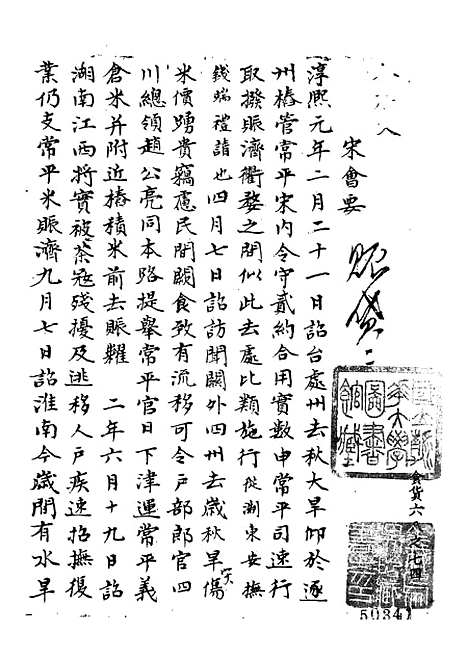 賑貸二
食貨六八之七四
宋會要
淳熙元年二月二十一日詔台處州去秋大旱仰於逐
州樁管常平米內令守貳約合用實數申常平司速行
取撥賑濟衢婺之間似此去處比類施行從浙東安撫
錢端禮請也四月七日詔訪聞關外四州去歲秋旱傷
米價踴貴竊慮民間闕食致有流移可令戶部郎官四
川總領趙公亮同本路提舉常平官日下津運常平義
倉米并附近樁積米前去賑糶 二年六月十九日詔
湖南江西將實被茶寇殘擾及逃移人戶疾速招撫復
業仍支常平米賑濟九月七日詔淮南今歲間有水旱
50341